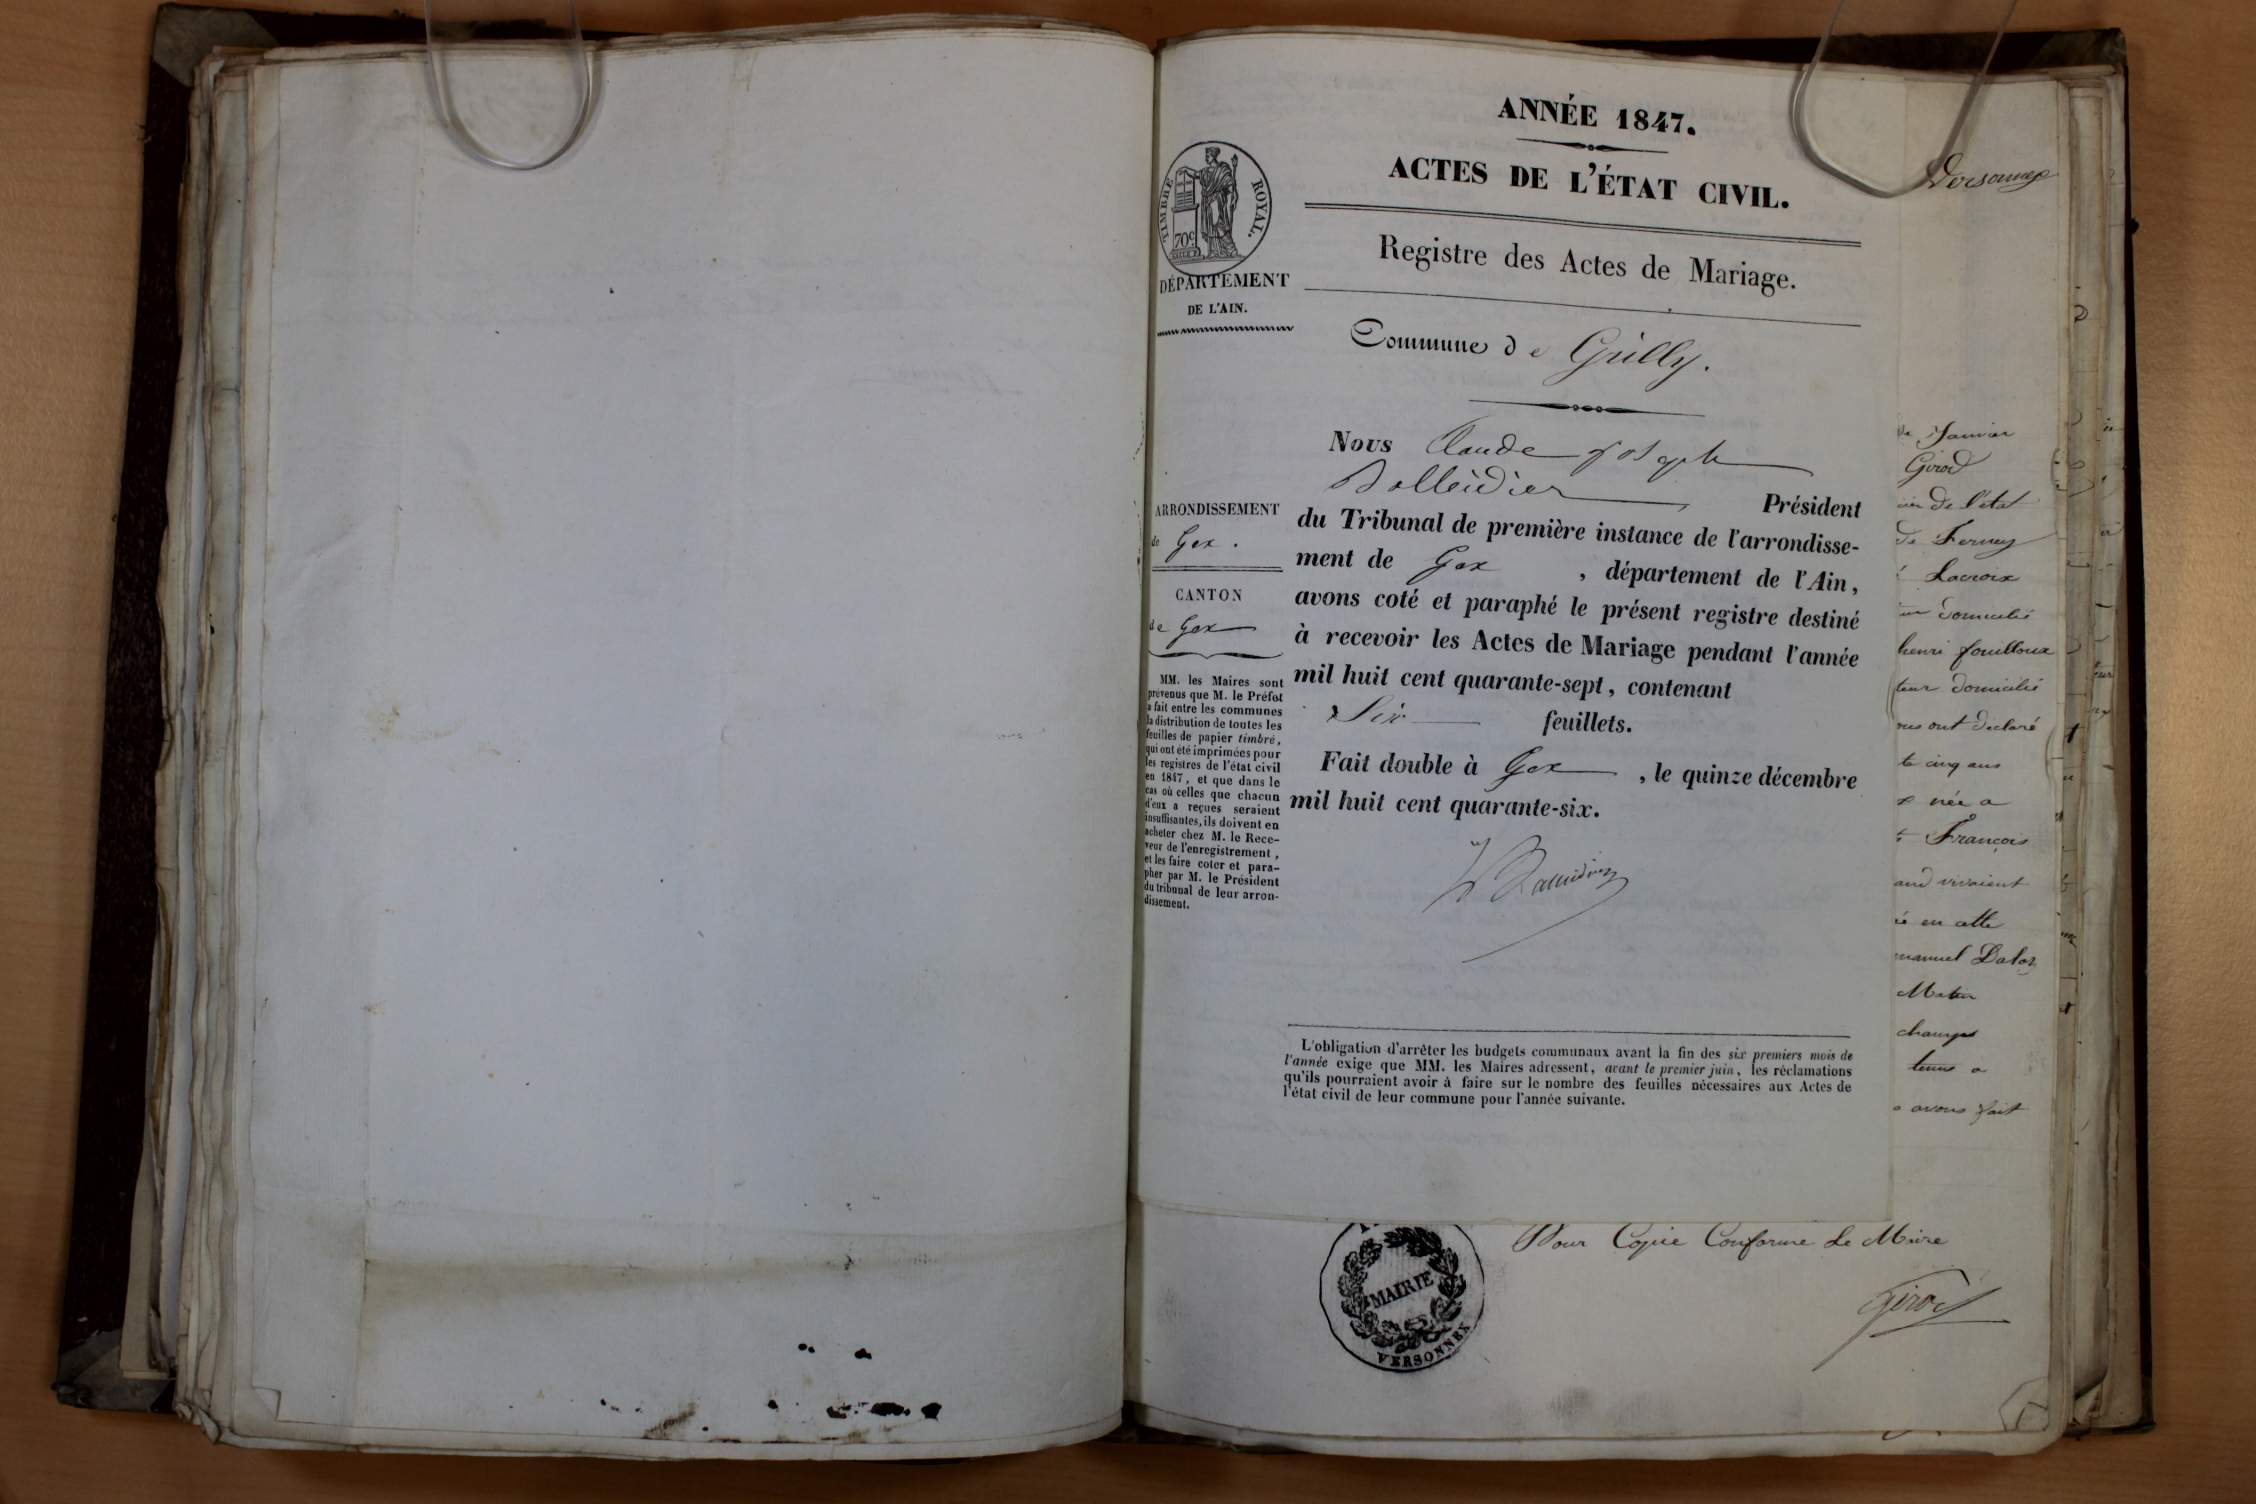 ANNÉE 1847.
ACTES DE L'ÉTAT CIVIL.
Registre des Actes de Mariage.
TIMBRE ROYAL.
70c
DÉPARTEMENT
DE L'AIN.
Commune de Grilly.
Nous Claude Joseph
Balleidier Président
du Tribunal de première instance de l'arrondisse-
ment de Gex , département de l'Ain,
avons coté et paraphé le présent registre destiné
à recevoir les Actes de Mariage pendant l'année
mil huit cent quarante-sept, contenant
Six feuillets.
Fait double à Gex , le quinze décembre
mil huit cent quarante-six.
ARRONDISSEMENT
de Gex.
CANTON
de Gex
MM. les Maires sont
prévenus que M. le Préfet
a fait entre les communes
la distribution de toutes les
feuilles de papier timbré,
qui ont été imprimées pour
les registres de l'état civil
en 1847, et que dans le
cas où celles que chacun
d'eux a reçues seraient
insuffisantes, ils doivent en
acheter chez M. le Rece-
veur de l'enregistrement,
et les faire coter et para-
pher par M. le Président
du tribunal de leur arron-
dissement.
L'obligation d'arrêter les budgets communaux avant la fin des six premiers mois de
l'année exige que MM. les Maires adressent, avant le premier juin, les réclamations
qu'ils pourraient avoir à faire sur le nombre des feuilles nécessaires aux Actes de
l'état civil de leur commune pour l'année suivante.
Versonnex
Janvier
Girod
de l'état
de Ferney
Lacroix
domicilié
henri fouilloux
teur domicilié
ous ont déclaré
te cinq ans
née a
François
and vivaient
en
manuel Daloz
tenus a
avons fait
Pour Copie Conforme Le Maire
Girod
MAIRIE
VERSONNEX